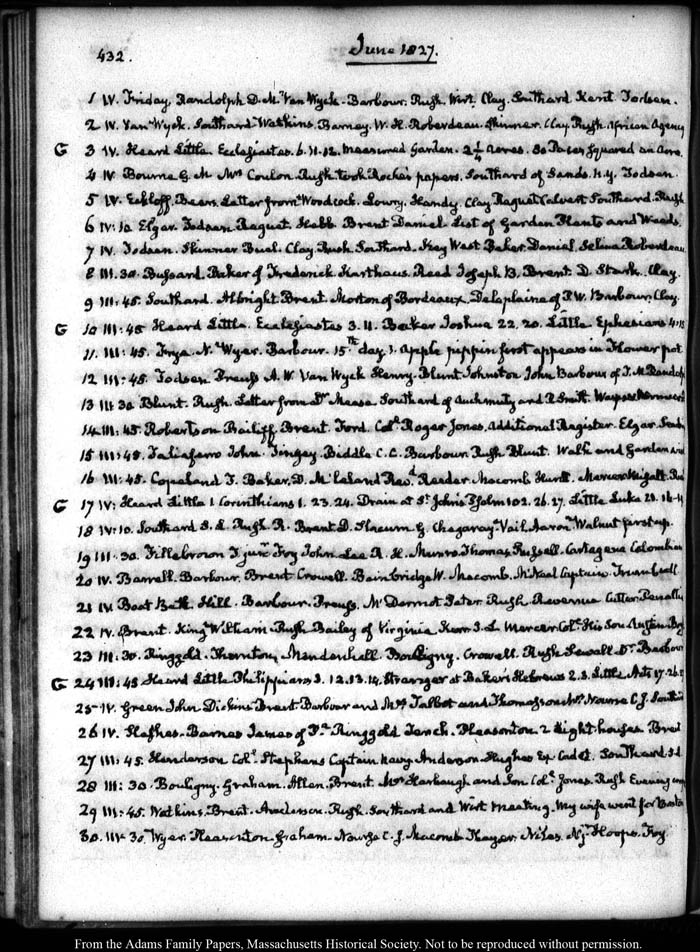 432.
June 1827.
1 IV. Friday. Randolph D. Mr Van Wyck. Barbour. Rush. Wirt. Clay. Southard Kent Todsen.
2 IV. Van Wyck. Southard Watkins. Barney. W. H. Roberdeau. Skinner. Clay. Rush. African Agency
G 3 IV. Heard Little. Ecclesiastes. 6. 11. 12. measured Garden. 2 1/4 acres. 80 Paces squared an acre.
4 IV Bourne G. M Mrs Coulon. Rush took Roche's papers. Southard of Sands. N.Y. Todsen.
5 IV. Eckloff. Beans. Letter from Woodcock. Lowry. Handy. Clay Raguet Calvert Southard. Rush
6 IV: 10 Elgar. Todsen Raguet. Hebb Brent Daniel List of Garden Plants and Weeds.
7 IV. Todsen. Skinner Buel. Clay Rush Southard. Key West Baker. Daniel Roberdeau
8 III. 30. Bussard. Baker of Frederick Karthaus. Reed Joseph B. Brent. D. Stark. Clay.
9 III: 45. Southard. Albright Brent. Morton of Bordeaux. Delaplaine of P.W. Barbour. Clay.
G 10 III: 45 Heard Little. Ecclesiastes 3. 11. Baker Joshua 22. 20. Little Ephesians 4: 15
11. III: 45. Frye. N. Wyer. Barbour. 15th day. 1. apple pippin first appears in Flower pot
12 III: 45. Todsen Preuss A. W. Van Wyck Henry. Blunt Johnston John Barbour of T. M. Randolph
13 III 30 Blunt. Rush. Letter from Dr Mease Southard of Auchmuty and R Smith.
14 III: 45 Robertson Bailiff Brent. Ford. Col. Roger Jones. Additional Register. Elgar.
15 III: 45. Taliaferro John. Tingey. Biddle C. C. Barbour. Rush Blunt. Walk and Garden
16 III: 45. Copeland J. Baker. D. McLeland Read. Reeder. Macomb Hurtt. Mercer
G 17 IV: Heard Little 1 Corinthians 1. 23. 24. Drain at St John's Psalm 102. 26. 27. Little Luke
18 IV: 10. Southard S. L. Rush R. Brent D. Slacum G. Chegaray Vail Aaron Walnut first up.
19 III: 30. Fillebrown T. junr Foy John Lee R. H. Munro. Thomas Russell. Cartagena Colombian
20 IV. Barrell. Barbour. Brent Crowell. Bainbridge W. Macomb. McNeal Captain. Trumbull
21 IV Boat Bath Hill. Barbour. Preuss. McDermot Peter Rush Revenue Cutter Penalty
22 IV. Brent. King William. Rush Bailey of Virginia Kerr J. L Mercer Col. His Son Austin
23 III: 30. Ringgold. Thornton. Mendenhall. Bouligny. Crowell. Rush Sewall. Dr Barbour
G 24 III: 45 Heard Little Philippians 3. 12. 13. 14. Stranger at Baker's Hebrews 2. 3. Little Acts 17. 26.
25 IV. Green John Dickins Brent Barbour and Mrs Talbot and Thomasson Nourse C. J.
26 IV. Barnes James of Ringgold Tench. Pleasonton 2 Light houses. Brent
27 III: 45. Henderson Col. Stephens Captain Navy Anderson Hughes Ex Cadet. Southard. S. L
28 III: 30. Bouligny. Graham. Allen. Brent. Mrs Harbaugh and Son Col. Jones. Rush Evening
29 III: 45. Watkins. Brent. Anderson. Rush. Southard and Wirt meeting. My wife went for Boston
30. III 30. Wyer. Pleasonton. Graham. Nourse C. J. Macomb. Niles. Hoope. Foy
From the Adams Family Papers, Massachusetts Historical Society. Not to be reproduced without permission.